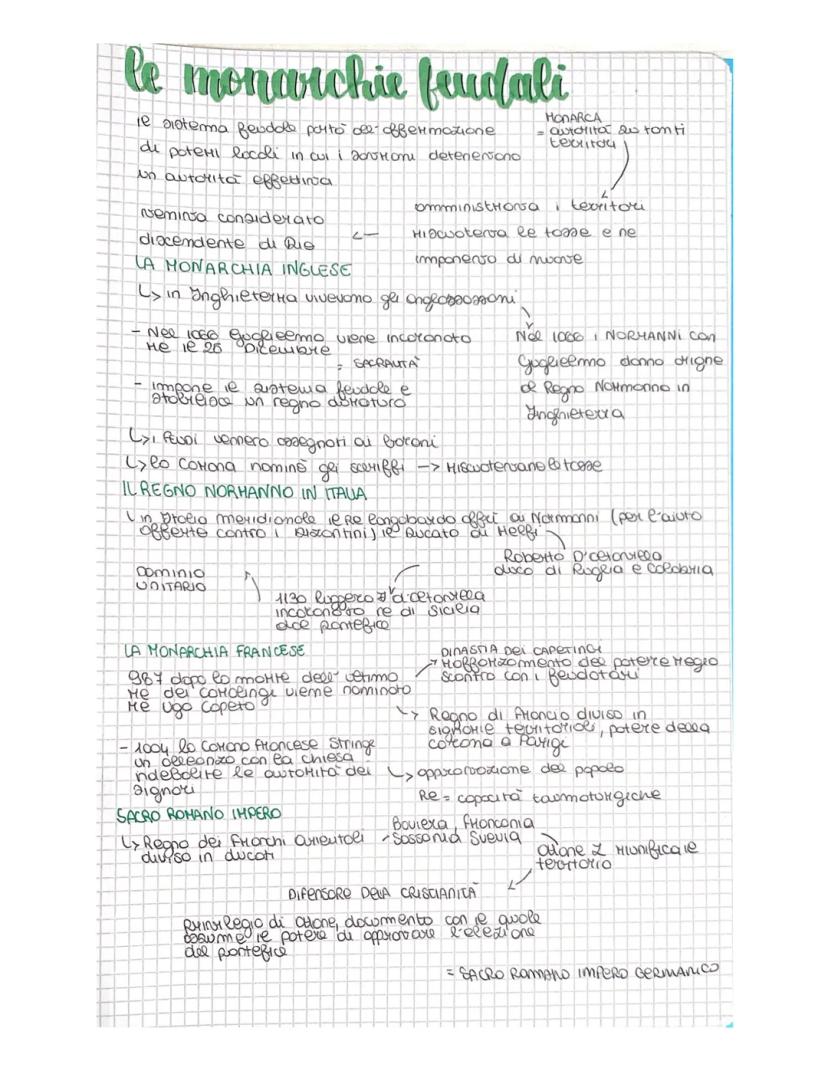 le monarchie feudali
il sistema feudale portò all'affermazione
di poteri locali in cui i sovrani detenevano
un autorità effettiva
MONARCA
= autorità su tanti
territori
amministrava i territori
riscuoteva le tasse e ne
imponeva di nuove
<-
veniva considerato
discendente di Dio
LA MONARCHIA INGLESE
↳ in Inghilterra vivevano gli anglosassoni
- Nel 1066 Guglielmo viene incoronato
re il 25 Dicembre
= SACRALITÀ
- impone il sistema feudale e
stabilisce un regno duraturo
Nel 1066 i NORMANNI con
Guglielmo danno origne
al Regno Normanno in
Inghilterra
↳ i feudi vennero assegnati ai Baroni
↳ la corona nominò gli sceriffi -> riscuotevano le tasse
IL REGNO NORMANNO IN ITALIA
↳ in Italia meridionale il Re longobardo offrì ai Normanni (per l'aiuto
offerto contro i Bizantini) il Ducato di Melfi
Roberto D'altavilla
duca di Puglia e Calabria
DOMINIO
UNITARIO
1130 Ruggero II d'altavilla
incoronato re di sicilia
dal pontefice
LA MONARCHIA FRANCESE
987 dopo la morte dell'ultimo
re dei carolingi viene nominato
re Ugo Capeto
DINASTIA DEI CAPETINGI
rafforzamento del potere regio
scontro con i feudatari
↳ Regno di Francia diviso in
signorie territoriali, potere della
corona a Parigi
- 1004 la corona francese stringe
un alleanza con la chiesa
indebolire le autorità dei
signori
↳ approvazione del popolo
Re = capacità taumaturgiche
SACRO ROMANO IMPERO
↳ Regno dei Franchi orientali
diviso in ducati
Baviera, Franconia
Sassonia Suevia
Otone I riunifica il
territorio
DIFENSORE DELLA CRISTIANITÀ
privilegio di Otone, documento con il quale
assume il potere di approvare l'elezione
del pontefice
= SACRO ROMANO IMPERO GERMANICO